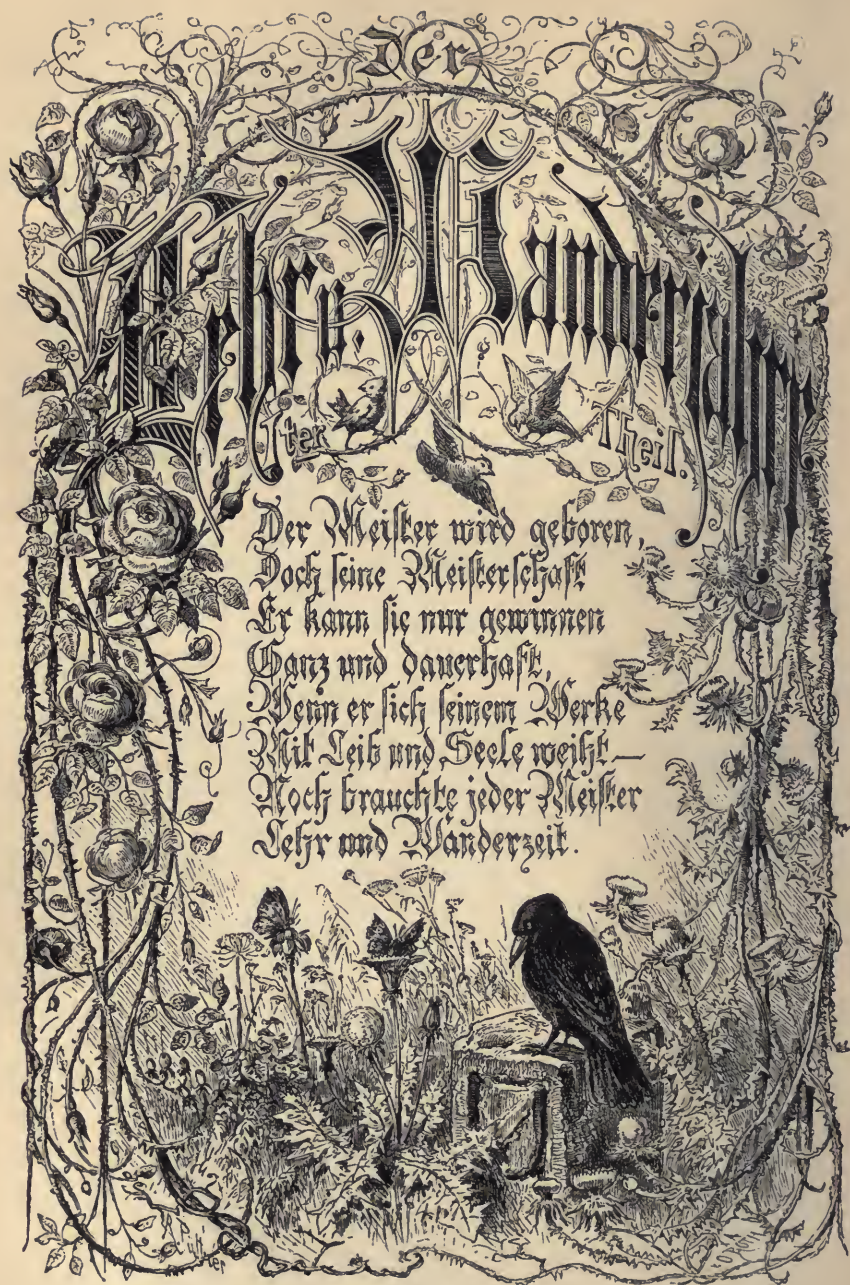 Der
Lehr u. Wanderjahre.
1ter Theil.
Der Meister wird geboren,
Doch seine Meisterschaft
Er kann sie nur gewinnen
Ganz und dauerhaft,
Wenn er sich seinem Werke
Mit Leib und Seele weiht—
Noch brauchte jeder Meister
Lehr und Wanderzeit.